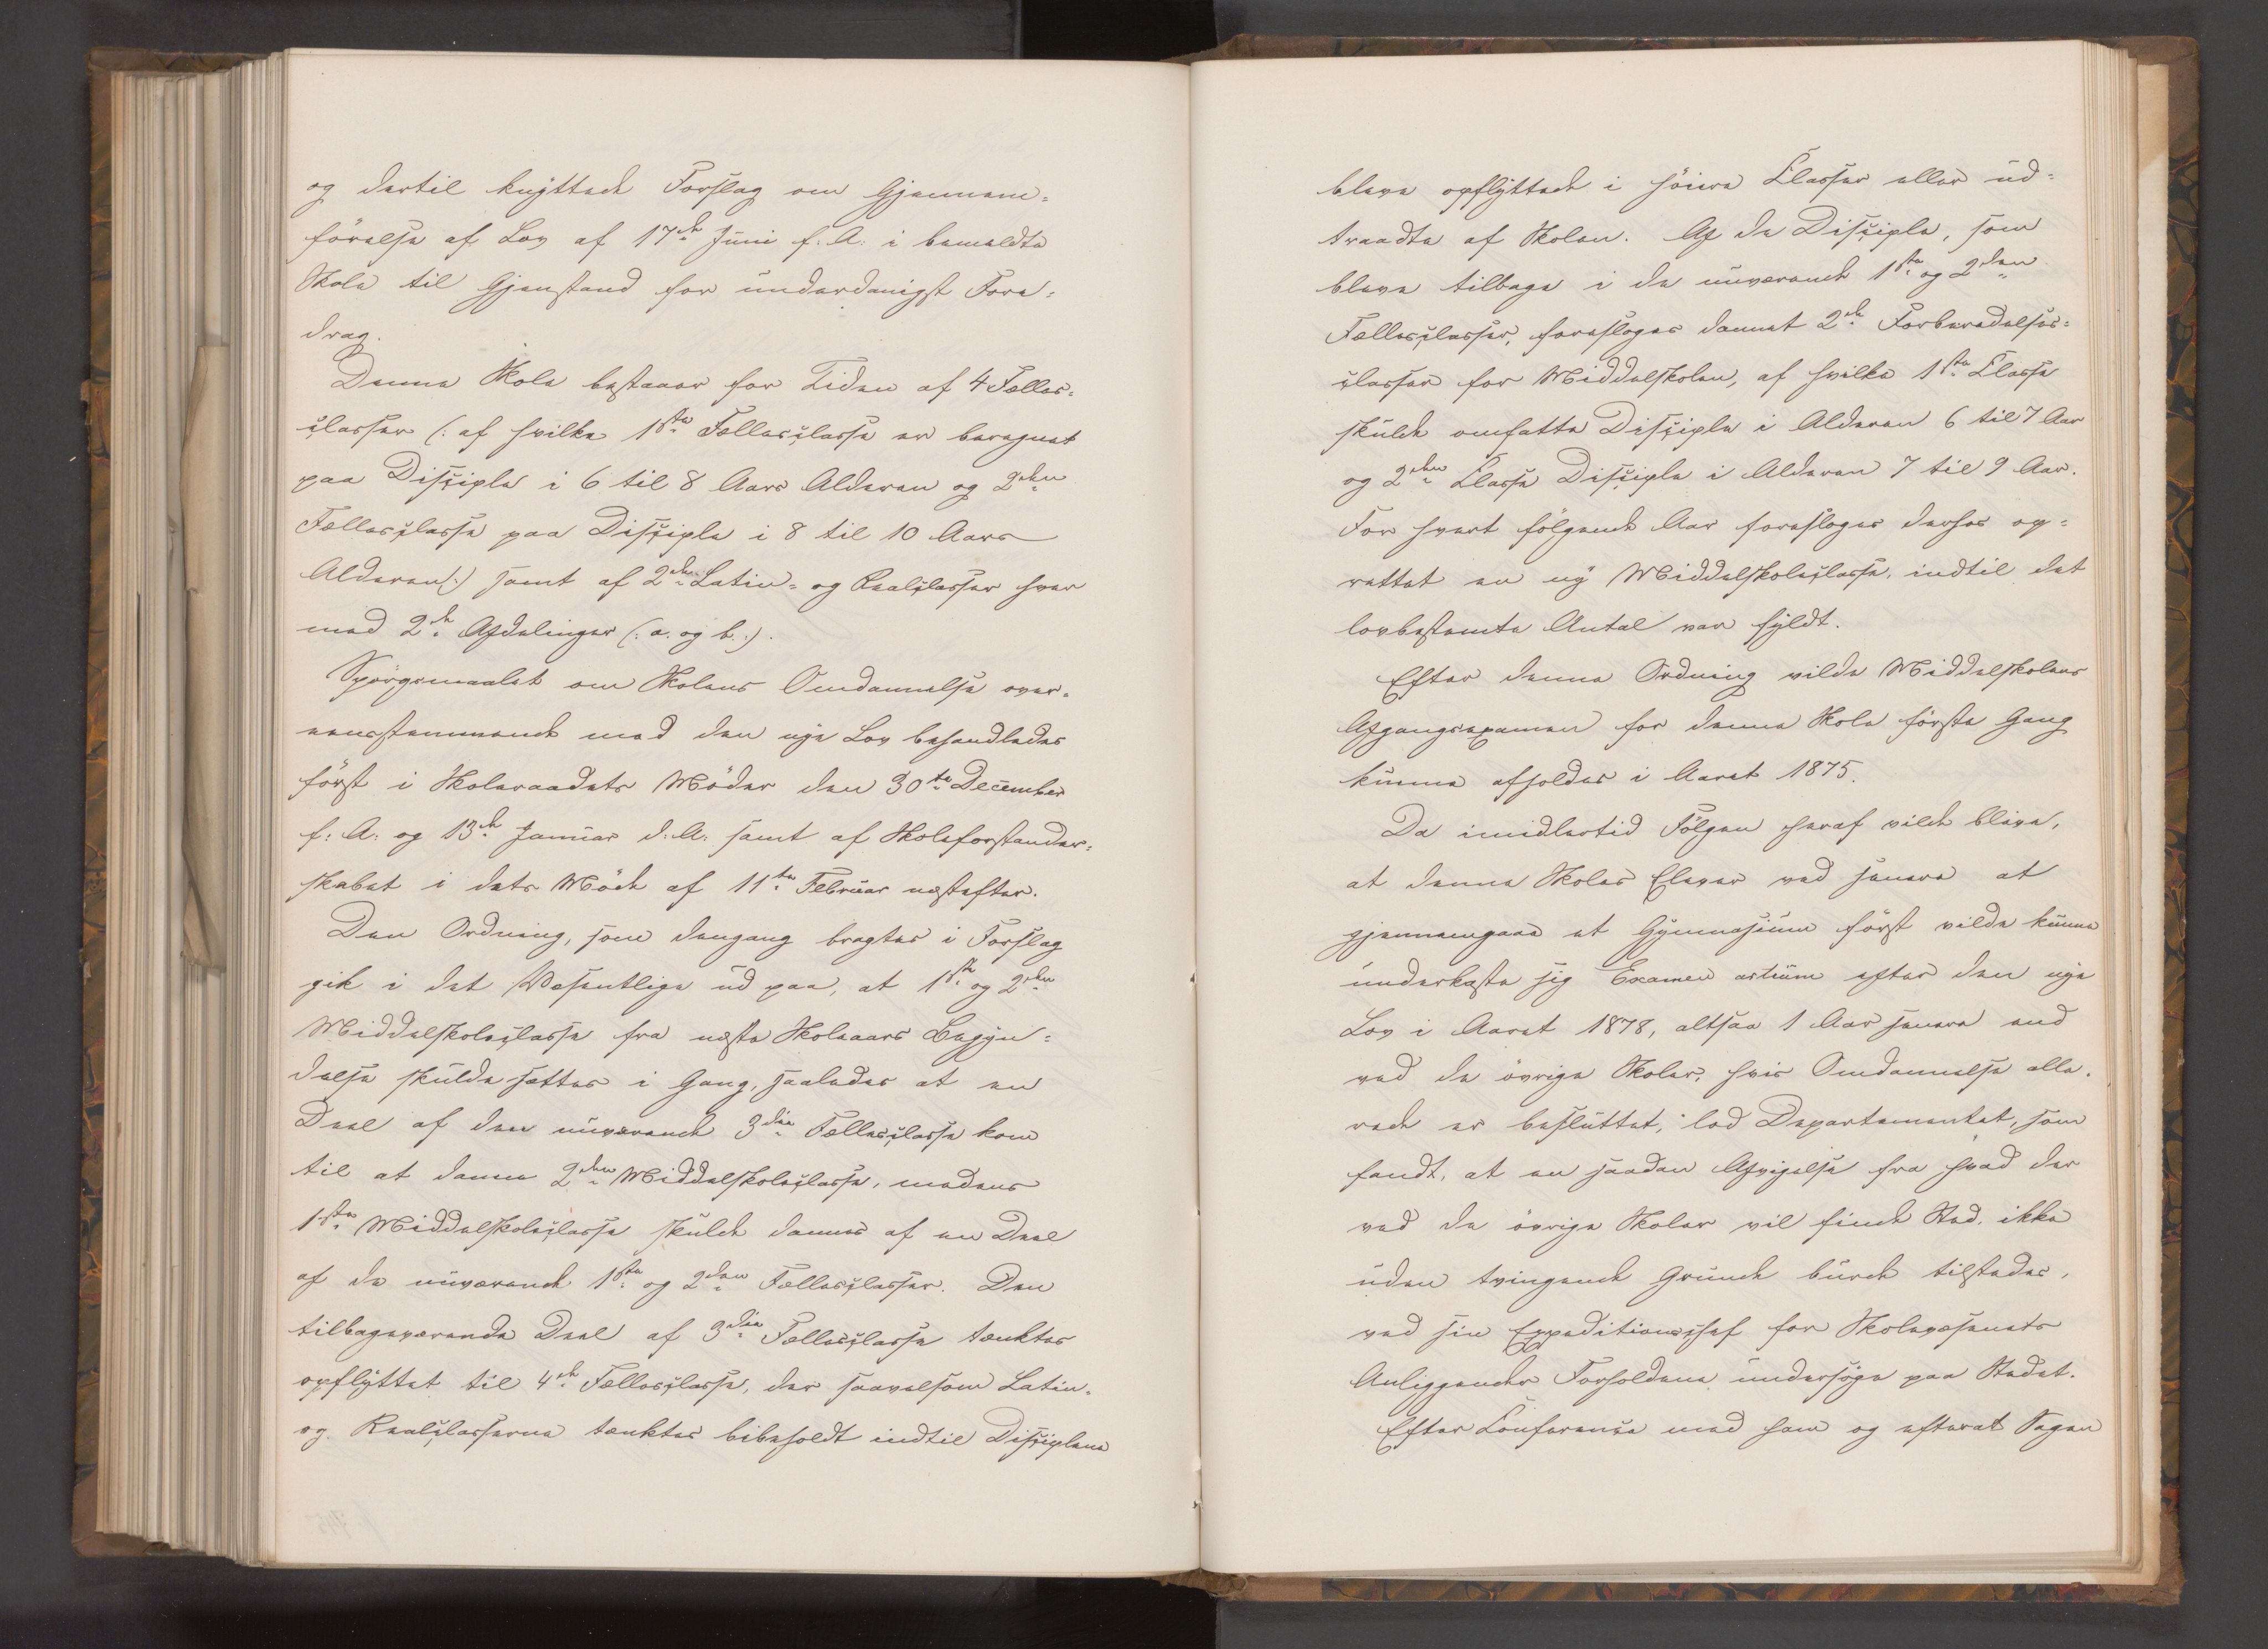 og dertil knyttede Forslag om Gjennem-
förelse af Lov af 17de Juni f: A: i bemeldte
Skole til Gjenstand for underdanigst Fore-
drag.
Denne Skole bestaaer for Tiden af 4 Fælles-
classer (: af hvilke 1ste Fællesclasse er beregnet
paa Disciple i 6 til 8 Aars Alderen og 2den
Fællesclasse paa Disciple i 8 til 10 Aars
Alderen :) samt af 2de Latin- og Realclasser hver
med 2de Afdelinger (: a. og b. :).
Spörgsmaalet om Skolens Omdannelse over-
eensstemmende med den nye Lov behandledes
först i Skoleraadets Möder den 30te December
f: A: og 13de Januar d: A: samt af Skoleforstander-
skabet i dets Möde af 11te Februar næstefter.
Den Ordning, som dengang bragtes i Forslag
gik i det Væsentlige ud paa, at 1ste og 2den
Middelskoleclasse fra næste Skoleaars Begyn-
delse skulde sættes i Gang, saaledes at en
Deel af den nuværende 3die Fællesclasse kom
til at danne 2den Middelskoleclasse, medens
1ste Middelskoleclasse skulde dannes af en Deel
af de nuværende 1ste og 2den Fællesclasser. Den
tilbageværende Deel af 3die Fællesclasse tænktes
opflyttet til 4de Fællesclasse, der saavelsom Latin-
og Realclasserne tænktes bibeholdt indtil Disciplene
bleve opflyttede i höiere Classer eller ud-
traadte af Skolen. Af de Disciple, som
bleve tilbage i de nuværende 1ste og 2den
Fællesclasser, foresloges dannet 2de Forberedelses-
classer for Middelskolen, af hvilke 1ste Classe
skulde omfatte Disciple i Alderen 6 til 7 Aar
og 2den Classe Disciple i Alderen 7 til 9 Aar.
For hvert fölgende Aar foresloges derhos op-
rettet en ny Middelskoleclasse, indtil det
lovbestemte Antal var fyldt.
Efter denne Ordning vilde Middelskolens
Afgangsexamen for denne Skole förste Gang
kunne afholdes i Aaret 1875.
Da imidlertid Fölgen heraf vilde blive,
at denne Skoles Elever ved senere at
gjennemgaae et Gymnasium först vilde kunne
underkaste sig Examen artium efter den nye
Lov i Aaret 1878, altsaa 1 Aar senere end
ved de övrige Skoler, hvis Omdannelse alle-
rede er besluttet, lod Departementet, som
fandt, at en saadan Afvigelse fra hvad der
ved de övrige Skoler vil finde Sted, ikke
uden tvingende Grunde burde tilstedes,
ved sin Expeditionschef for Skolevæsenets
Anliggender Forholdene undersöge paa Stedet.
Efter Conference med ham og efterat Sagen